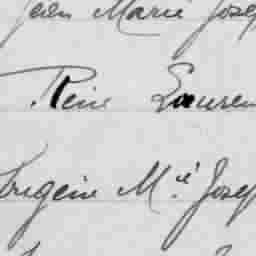 Jean Marie Josep
René Lauren
Eugène M.ie Josep